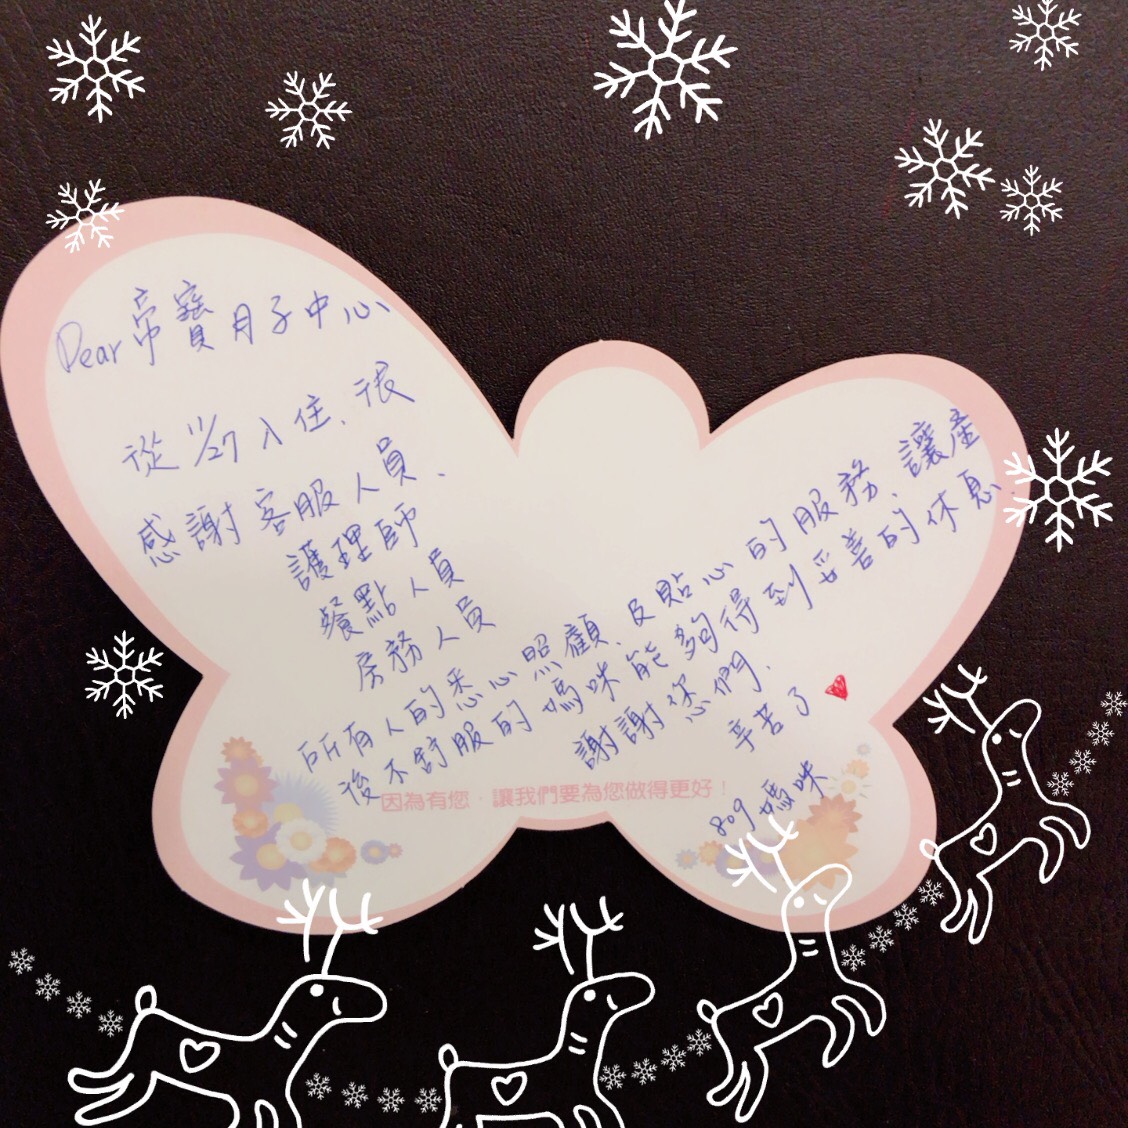 Dear 帝寶月子中心
從 11/27 入住、很
感謝客服人員、
護理師
餐點人員
房務人員
所有人的悉心照顧、及貼心的服務、讓產
後不舒服的媽咪能夠得到妥善的休息.
謝謝您們.
辛苦了
809 媽咪
因為有您，讓我們要為您做得更好！